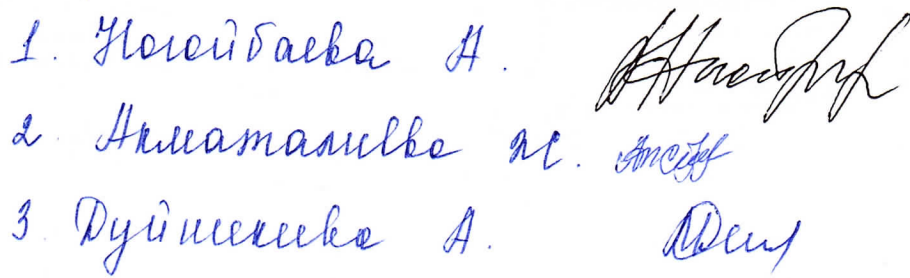 1. Ногойбаева А.
2. Акматалиева Ж.
3. Дуйшекеева А.